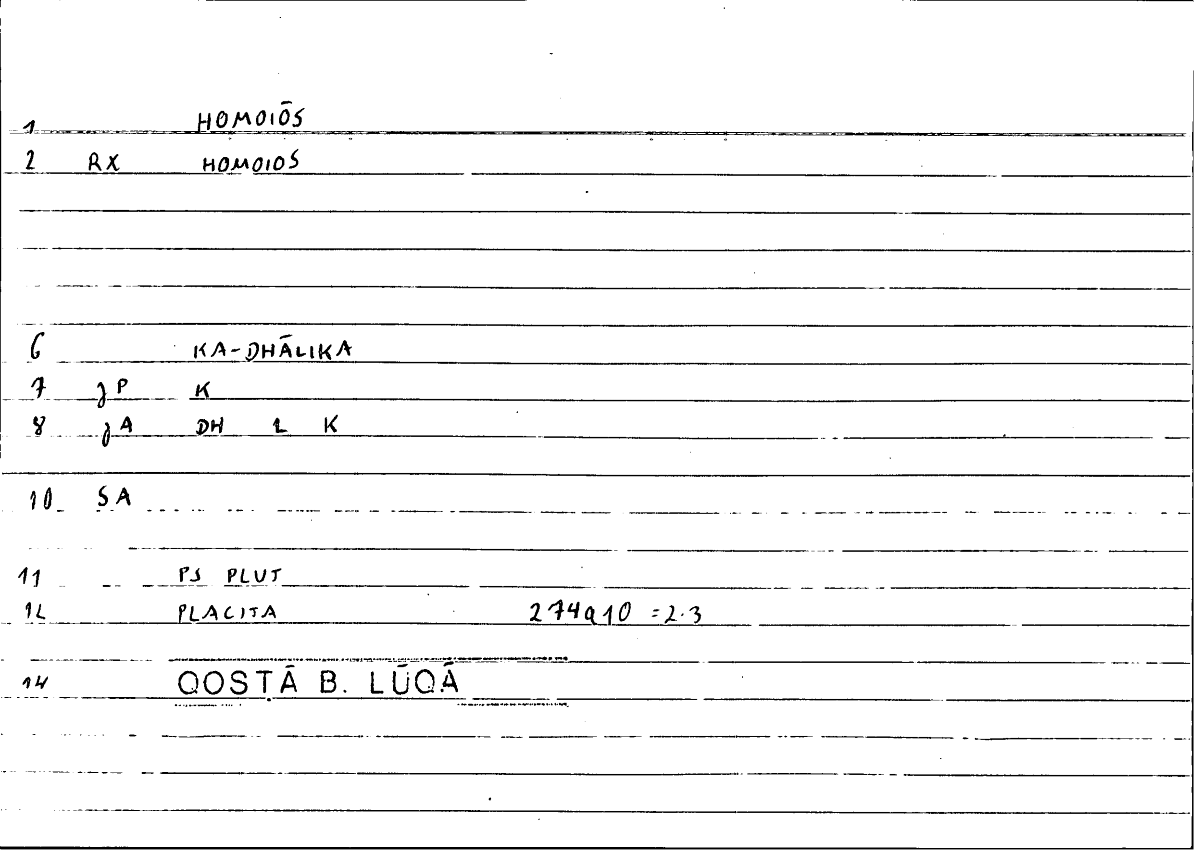 1 HOMOIŌS
2 RX HOMOIOS
6 KA-DHĀLIKA
7 jP K
8 jA DH L K
10 SA
11 PS PLUT
12 PLACITA 274a10 =2.3
14 QOSṬĀ B. LŪQĀ